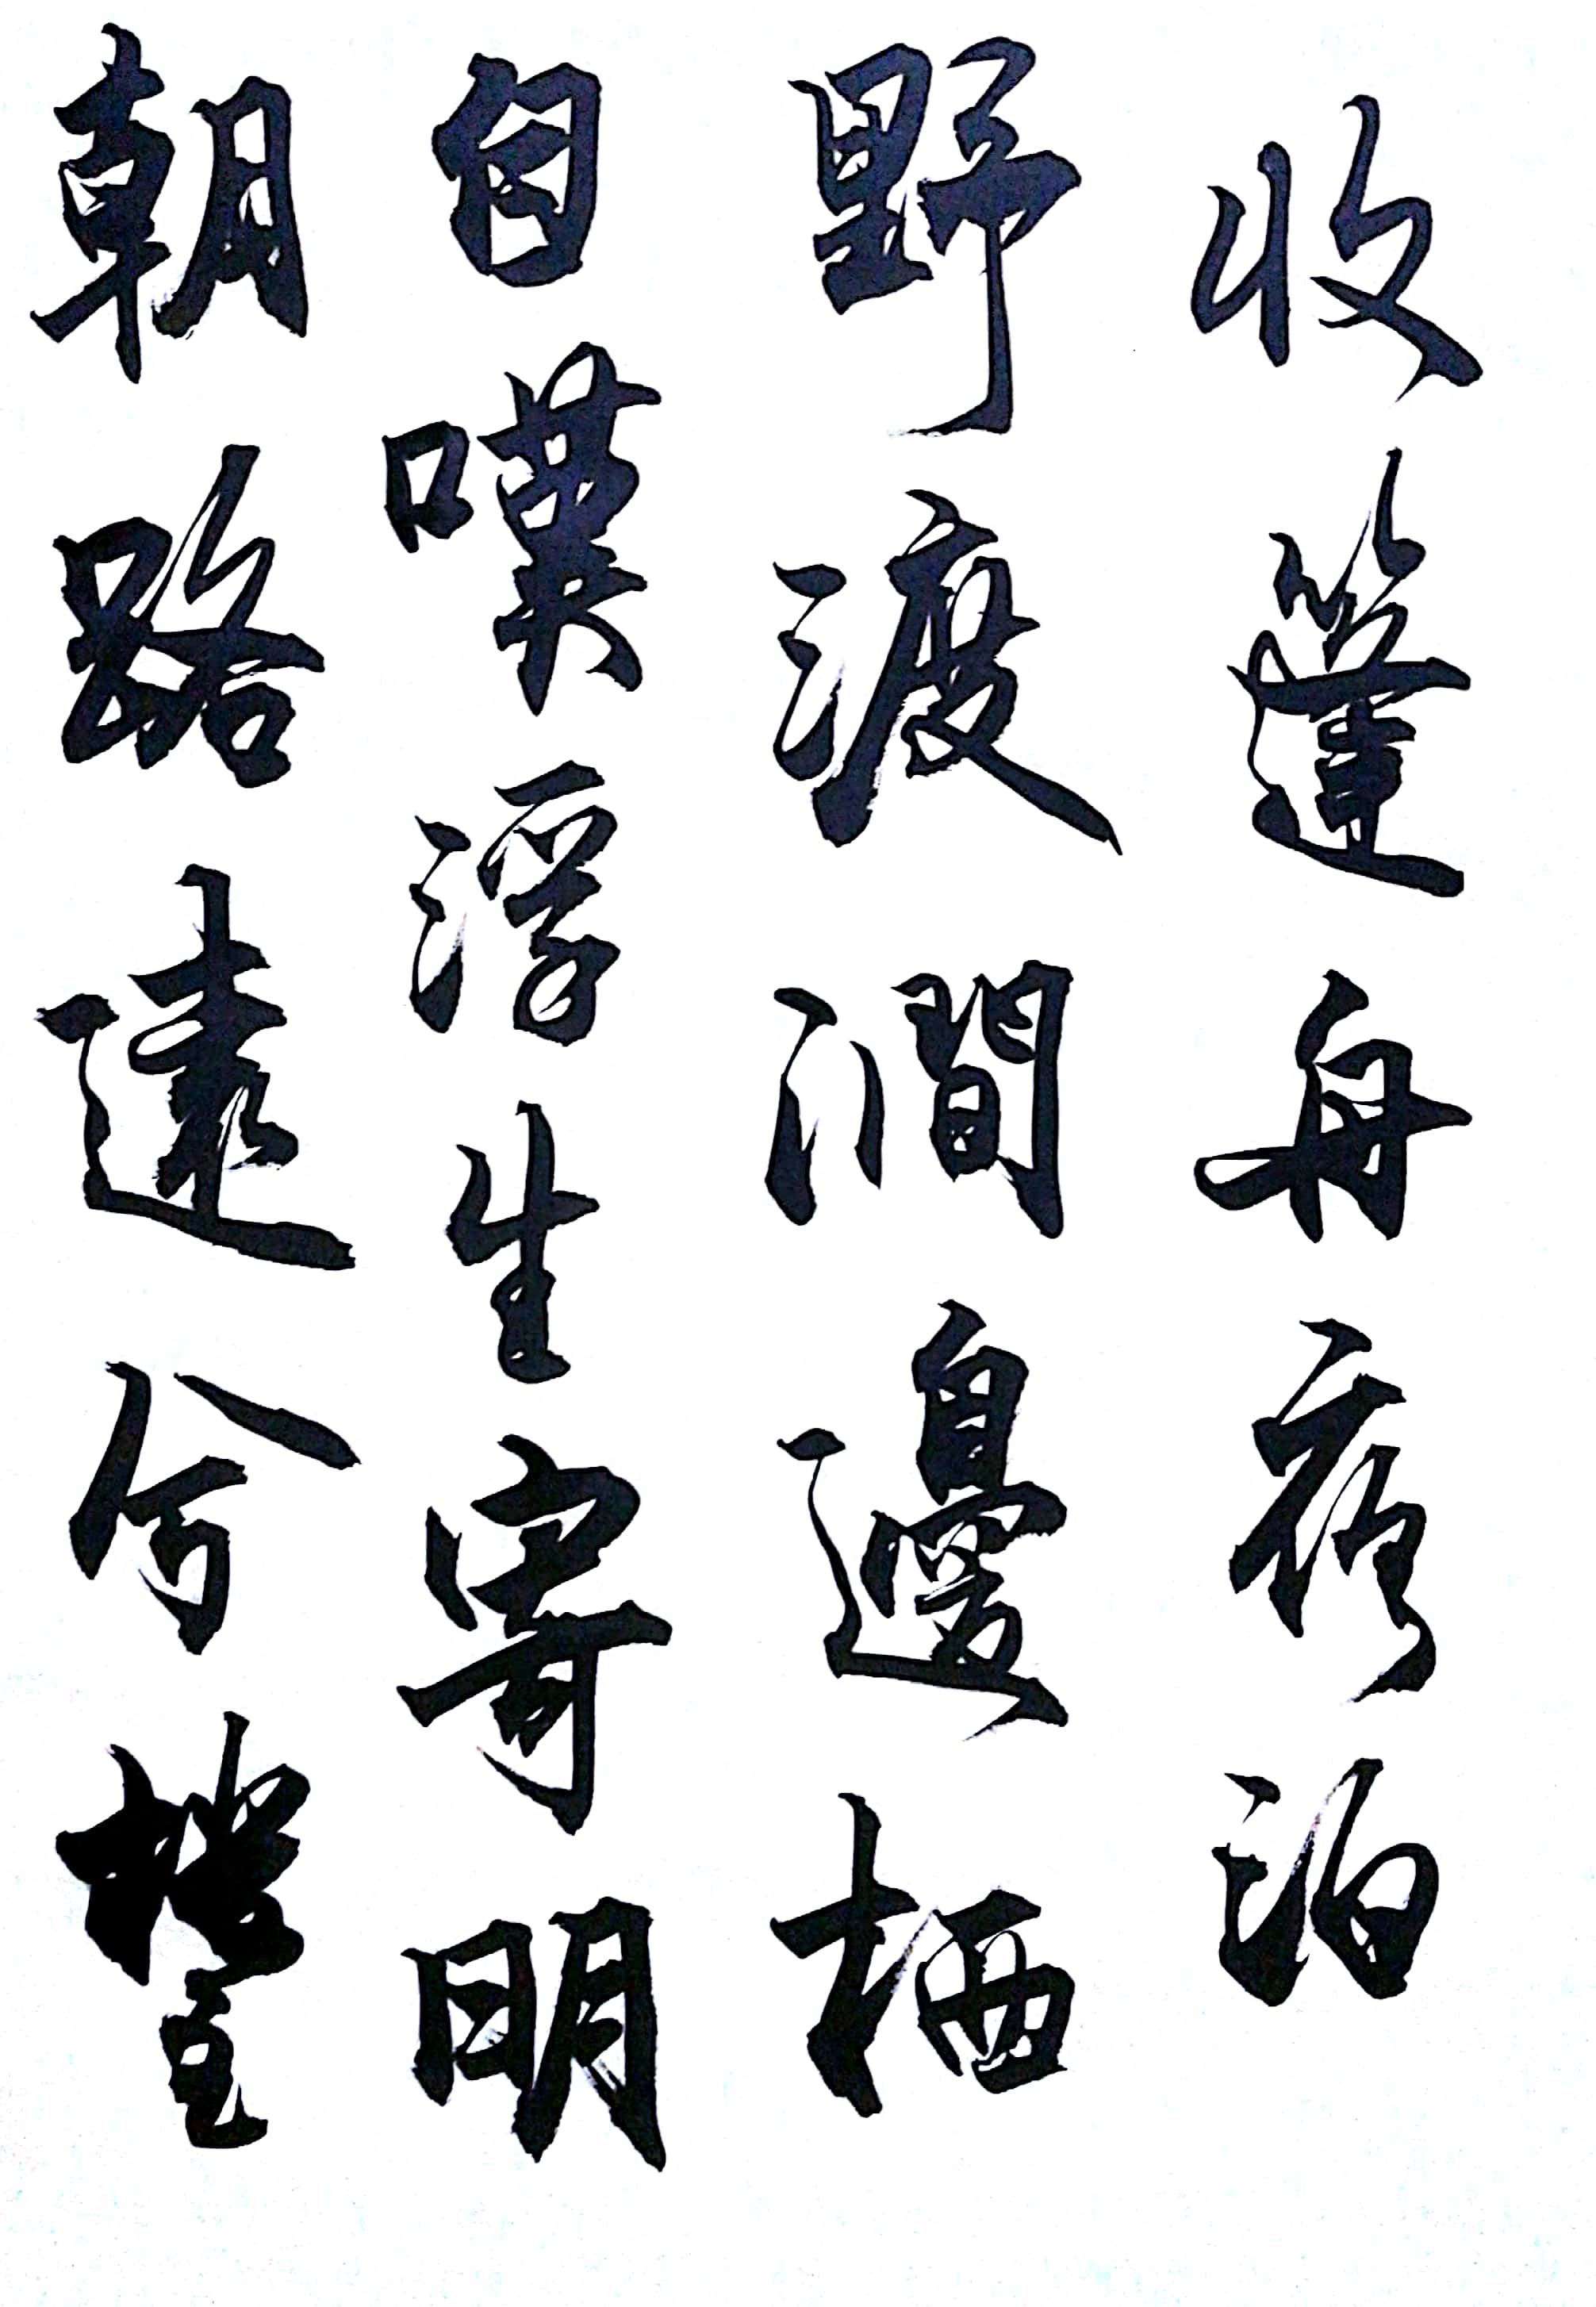 收篷舟夜泊
野渡澗邊栖
自嘆浮生寄明
朝路遠兮